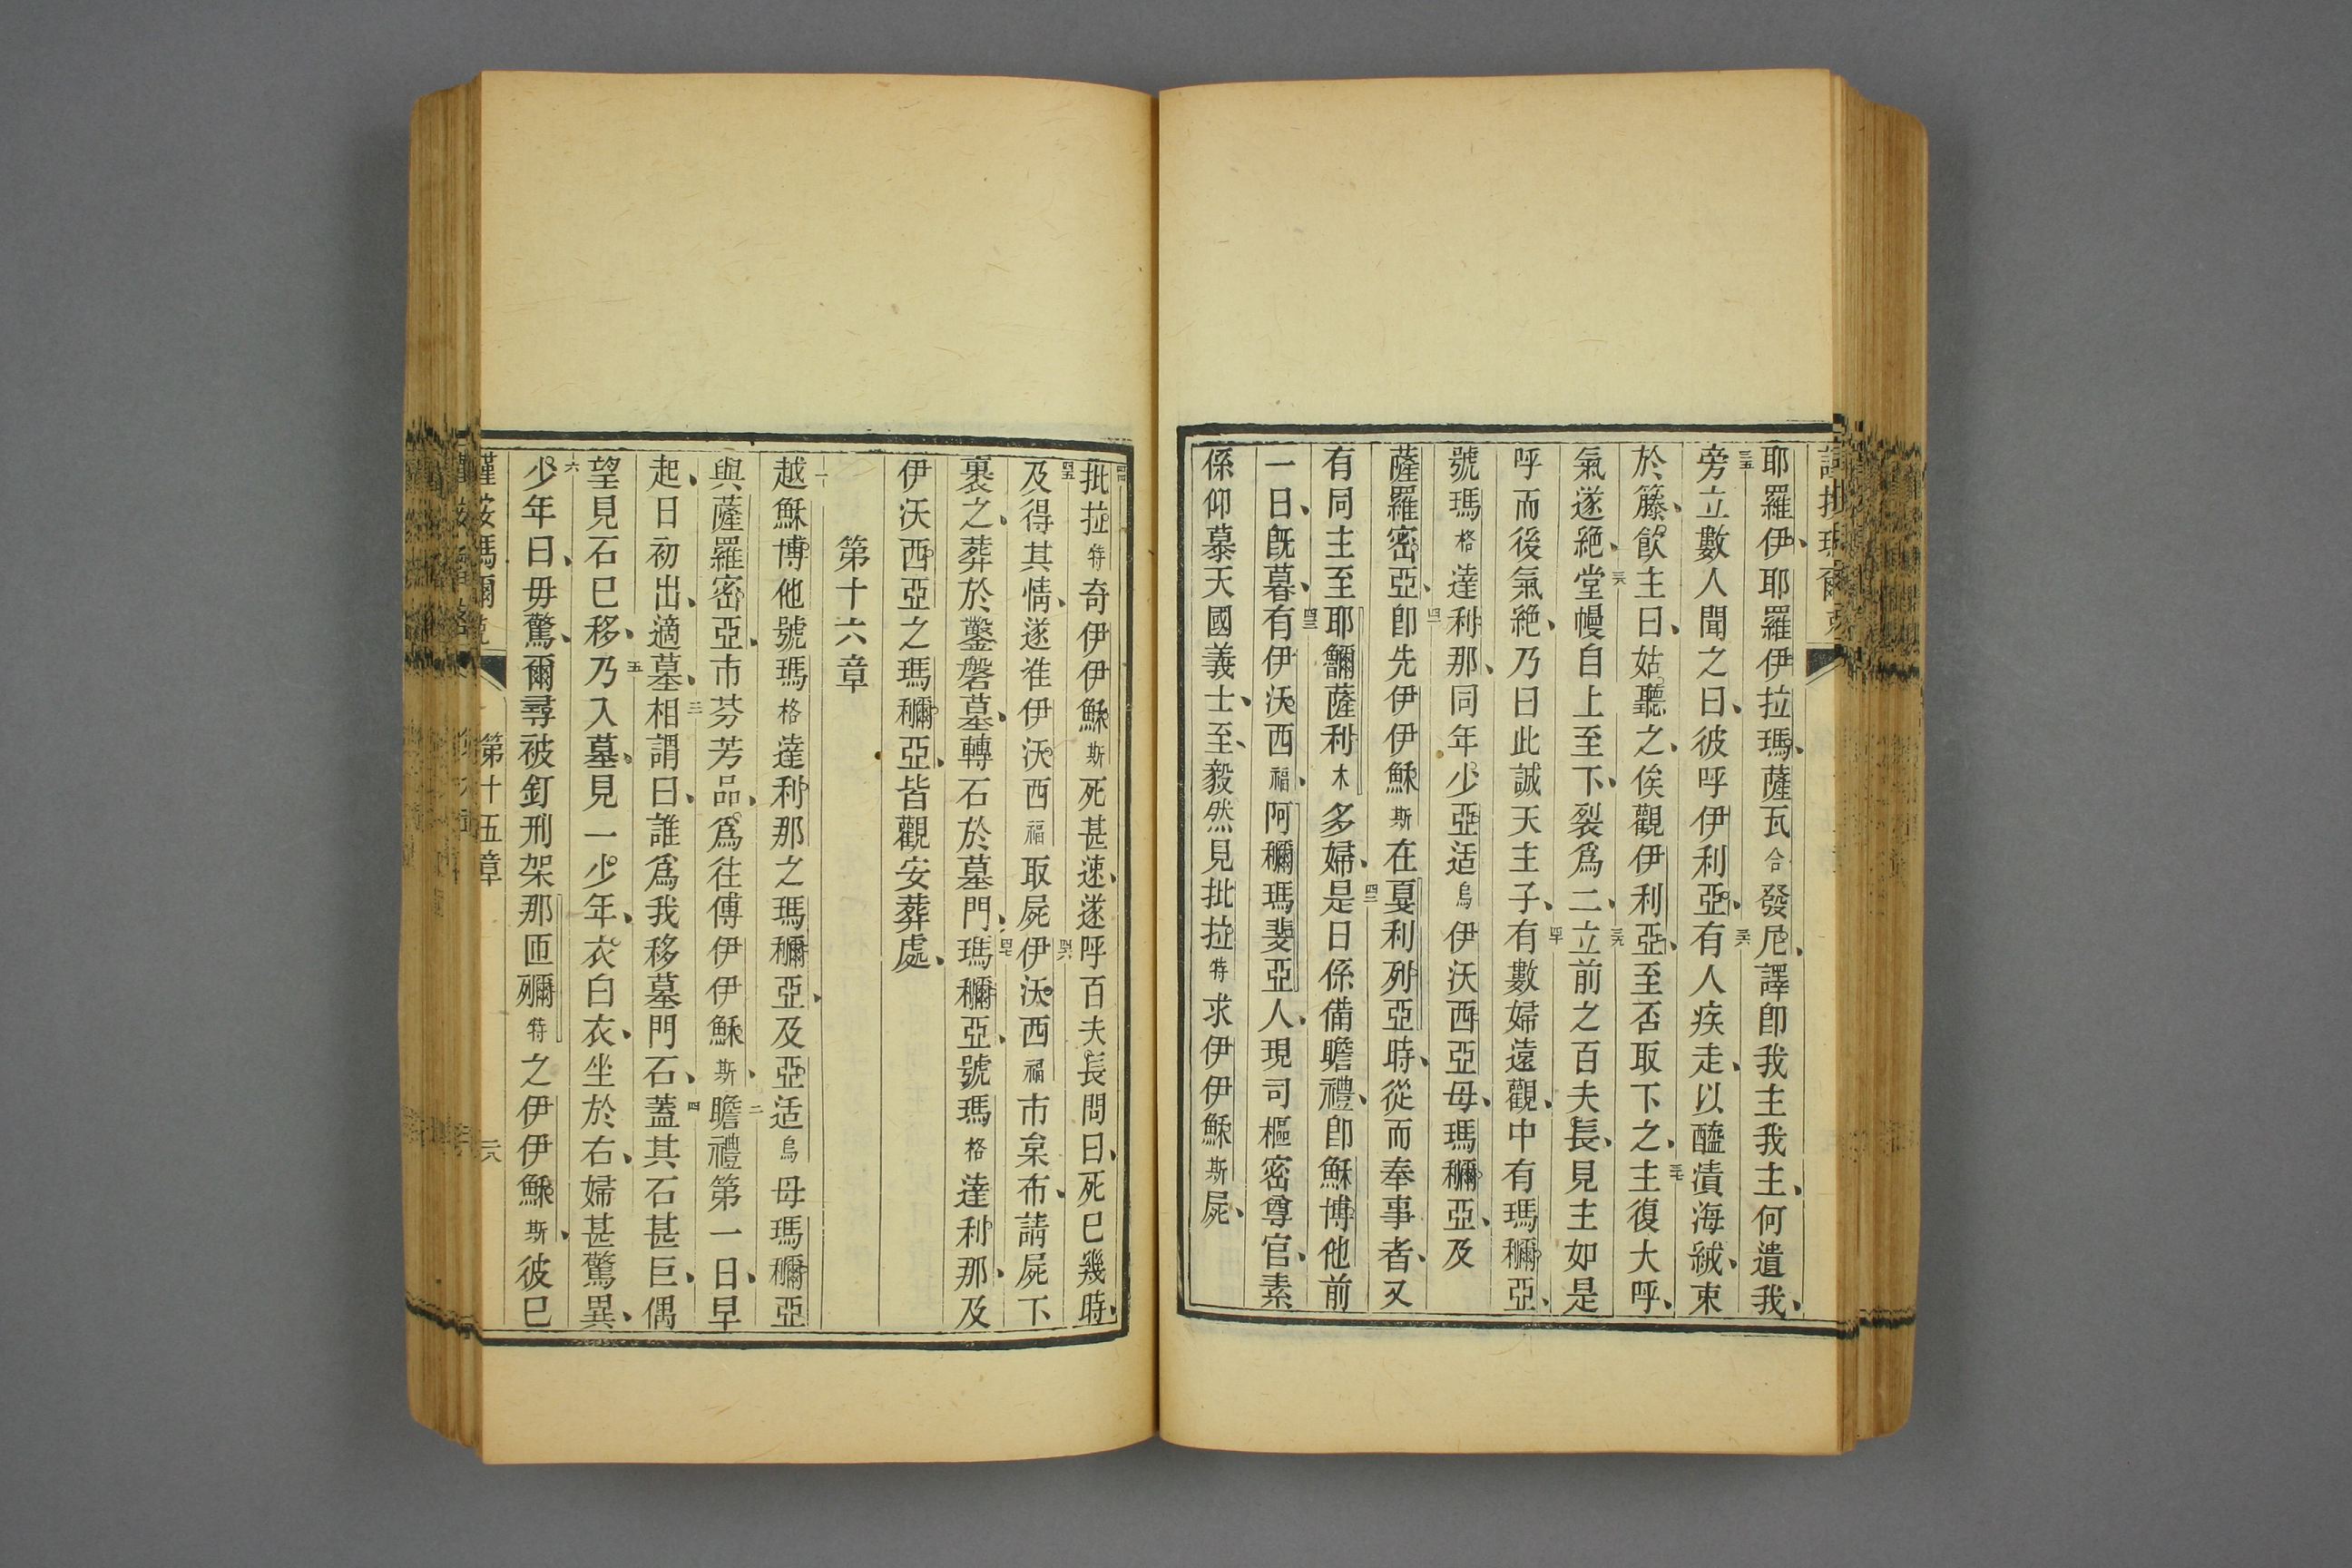 耶羅伊、耶羅伊、拉瑪、薩瓦合發尼、譯卽我主我主、何遺我、
三五旁立數人聞之曰、彼呼伊利亞、三六有人疾走、以醯漬海絨、束
於籐、飮主曰、姑聽之、俟觀伊利亞、至否取下之、三七主復大呼、
氣遂絕、三八堂幔自上至下、裂爲二、三九立前之百夫長、見主如是
呼而後氣絕、乃曰此誠天主子、四十有數婦遠觀、中有瑪穪亞、
號瑪格達利那、同年少亞适烏伊沃西亞母、瑪穪亞、及
薩羅密亞、四一卽先伊伊穌斯在戛利列亞時、從而奉事者、又
有同主至耶𬹃薩利木多婦、四二是日係備瞻禮、卽穌博他前
一日、旣暮、四三有伊沃西福、阿穪瑪斐亞人、現司樞密尊官、素
係仰慕天國義士、至、毅然見批拉特求伊伊穌斯屍、
四四批拉特奇伊伊穌斯死甚速、遂呼百夫長問曰、死巳幾時、
四五及得其情、遂准伊沃西福取屍、四六伊沃西福市枲布、請屍下
裹之、葬於鑿磐墓、轉石於墓門、四七瑪穪亞、號瑪格達利那、及
伊沃西亞之瑪穪亞、皆觀安葬處、
第十六章
一越穌博他、號瑪格達利那之瑪穪亞、及亞适烏母瑪穪亞
與薩羅密亞、市芬芳品、爲往傅伊伊穌斯、二瞻禮第一日、早
起、日初出、適墓、三相謂曰、誰爲我移墓門石、四蓋其石甚巨、偶
望見石巳移、五乃入墓、見一少年、衣白衣、坐於右、婦甚驚異、
六少年曰、毋驚、爾尋被釘刑架那匝列穪特之伊伊穌斯、彼巳
謹按瑪爾克 第十五章 三八